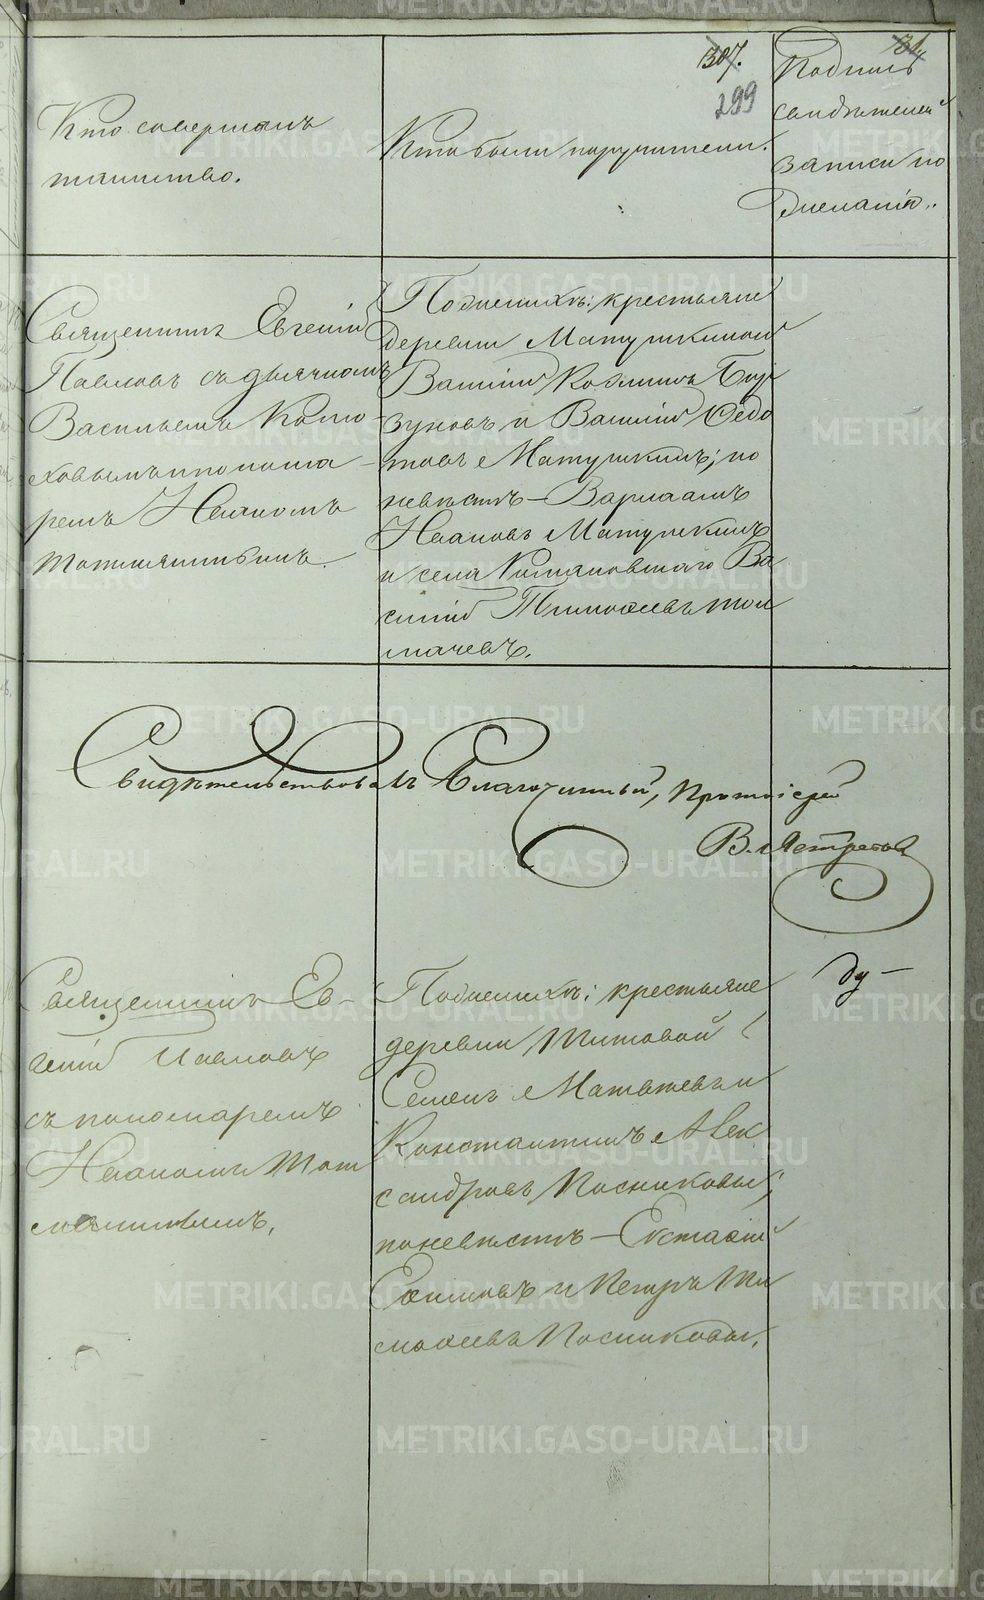 307.
31.
299
Кто совершалъ
таинство.
Кто были поручители.
Подпись
свидѣтелей
записи по
желанію.
Священникъ Евгеній
Павловъ съ дьячкомъ
Васильемъ Коло
ховымъ и понома
ремъ Иваномъ
По женихѣ: крестьяне
деревни Матушкиной
Василій Козминъ Бур
зуновъ и Василій Ѳедо
товъ Матушкинъ; по
невѣстѣ – Варлаамъ
Ивановъ Матушкинъ
и села Романовскаго Ва
силій Тимоѳеевъ Тол
мачевъ.
Свидѣтельствовалъ Благочинный, Протоіерей
В. Ястребовъ
Священникъ Ев-
геній Павловъ
съ пономаремъ
Иваномъ
По женихѣ: крестьяне
деревни Титовой
Семенъ Матвѣевъ и
Константинъ Алек
сандровъ Посниковы;
по невѣстѣ – Евстаѳій
Ефимовъ и Петръ Ти
моѳеевъ Посниковы.
METRIKI.GASO-URAL.RU